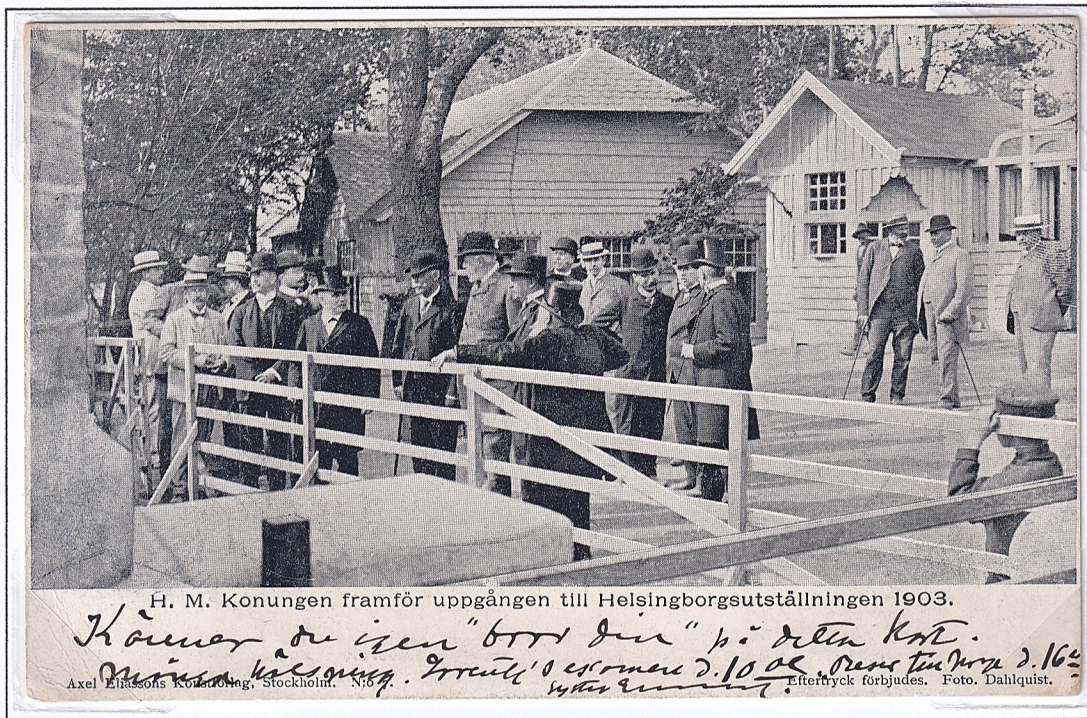 H. M. Konungen framför uppgången till Helsingborgsutställningen 1903.
Känner du igen "bror din" på detta kort.
Många hälsning. d. 10 d. 16
Axel Eliassons Konstförlag, Stockholm. Eftertryck förbjudes. Foto. Dahlquist.